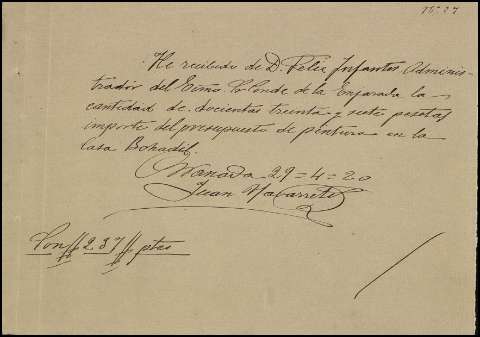 Nº 37
He recibido de D. Felix Infantes Adminis-
trador del Exmo. Sr. Conde de la Enjarada la
cantidad de doscientas treinta y siete pesetas
importe del presupuesto de pintura en la
Casa Bobadil.
Granada 29=4=20
Juan Navarrete
Son //237// ptas